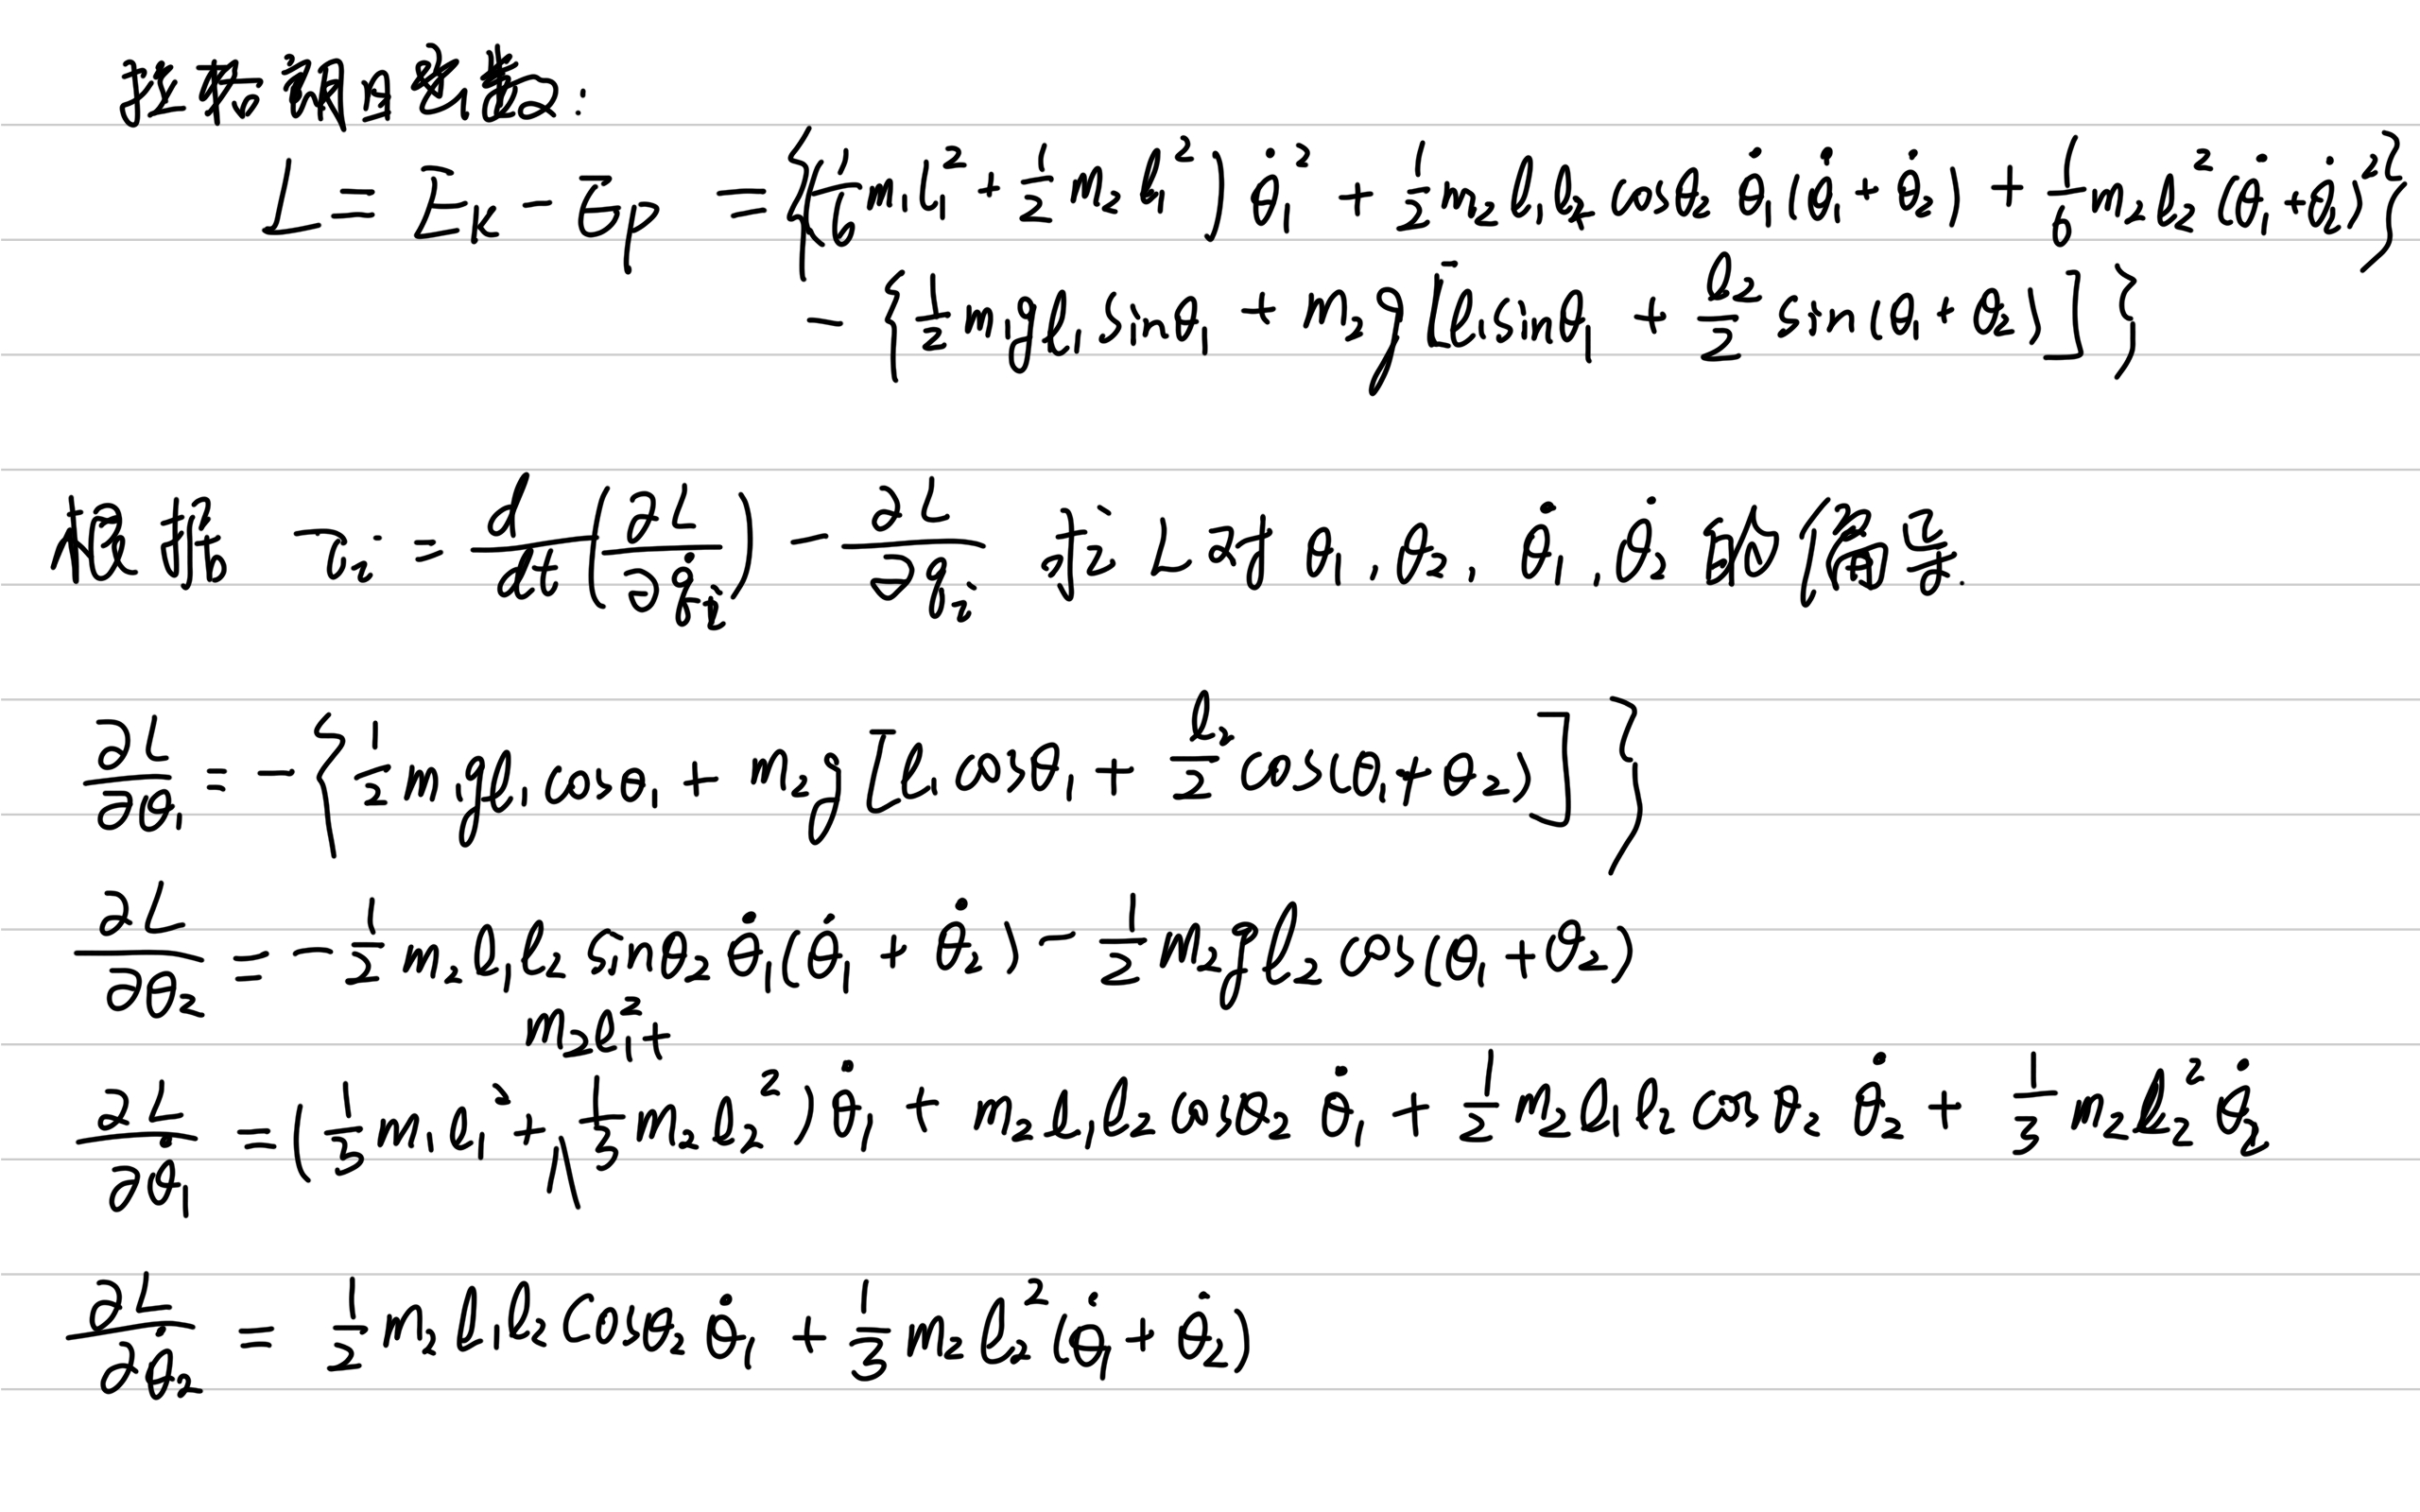 拉格朗日函数:
L = E_K - E_P = {(1/6 m₁l₁² + 1/2 m₂l₁²) θ̇₁² + 1/2 m₂l₁l₂ cosθ₂ θ̇₁(θ̇₁+θ̇₂) + 1/6 m₂l₂²(θ̇₁+θ̇₂)²}
- {1/2 m₁gl₁ sinθ₁ + m₂g[l₁sinθ₁ + l₂/2 sin(θ₁+θ₂)]}
根据 τᵢ = d/dt(∂L/∂q̇ᵢ) - ∂L/∂qᵢ 求 L对 θ₁, θ₂, θ̇₁, θ̇₂ 的偏导.
∂L/∂θ₁ = -{1/2 m₁gl₁cosθ₁ + m₂g[l₁cosθ₁ + l₂/2 cos(θ₁+θ₂)]}
∂L/∂θ₂ = - 1/2 m₂l₁l₂ sinθ₂ θ̇₁(θ̇₁+θ̇₂) - 1/2 m₂gl₂cos(θ₁+θ₂)
∂L/∂θ̇₁ = (1/3 m₁l₁² + m₂l₁² + 1/3 m₂l₂²)θ̇₁ + m₂l₁l₂cosθ₂ θ̇₁ + 1/2 m₂l₁l₂ cosθ₂ θ̇₂ + 1/3 m₂l₂² θ̇₂
∂L/∂θ̇₂ = 1/2 m₂l₁l₂cosθ₂ θ̇₁ + 1/3 m₂l₂²(θ̇₁+θ̇₂)